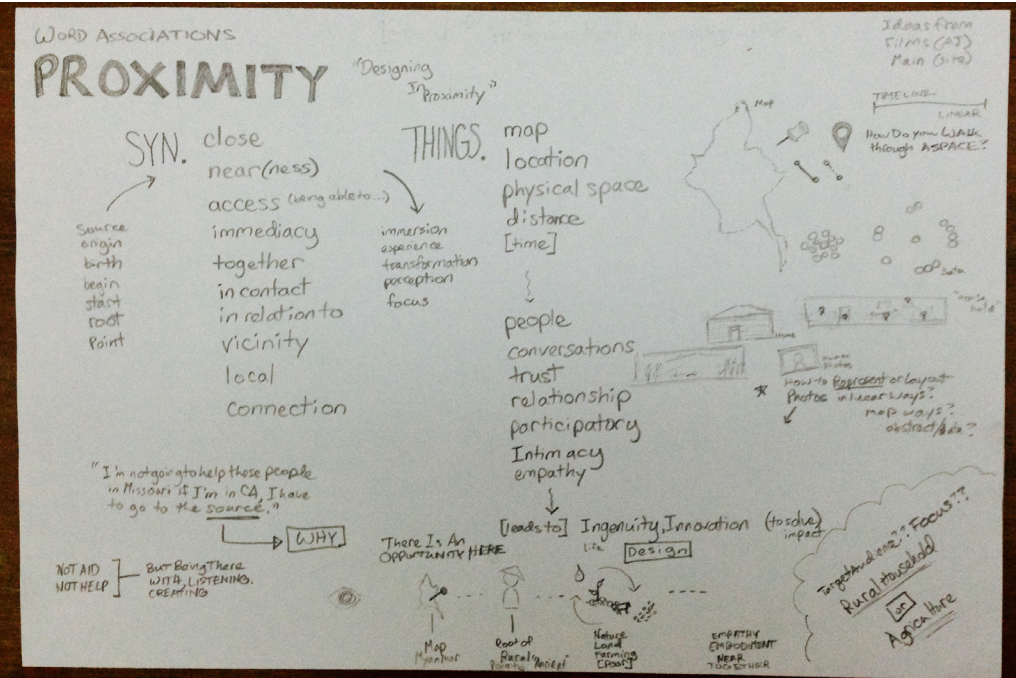 WORD ASSOCIATIONS
PROXIMITY
"Designing
In Proximity"
Ideas from
Films (AJ)
Main (site)
TIMELINE
LINEAR
How Do you WALK
through A SPACE?
Map
SYN.
close
near(ness)
access (being able to...)
immediacy
together
in contact
in relation to
vicinity
local
connection
source
origin
birth
begin
start
root
point
immersion
experience
transformation
perception
focus
THINGS.
map
location
physical space
distance
[time]
people
conversations
trust
relationship
participatory
Intimacy
empathy
[leads to] Ingenuity, Innovation (to solve)
impact
Design
life
data
House
* How to Represent or layout
Photos in linear ways?
map ways?
abstract/data?
"I'm not going to help those people
in Missouri if I'm in CA, I have
to go to the source."
WHY
NOT AID
NOT HELP
But Being There
WITH, LISTENING,
CREATING
There Is An
OPPORTUNITY HERE
Map
Myanmar
Root of
Rural
Nature
Land
Farming
[Poor]
EMPATHY
EMBODIMENT
NEAR
TOGETHER
Target Audience?? Focus??
Rural Household
or
Agriculture